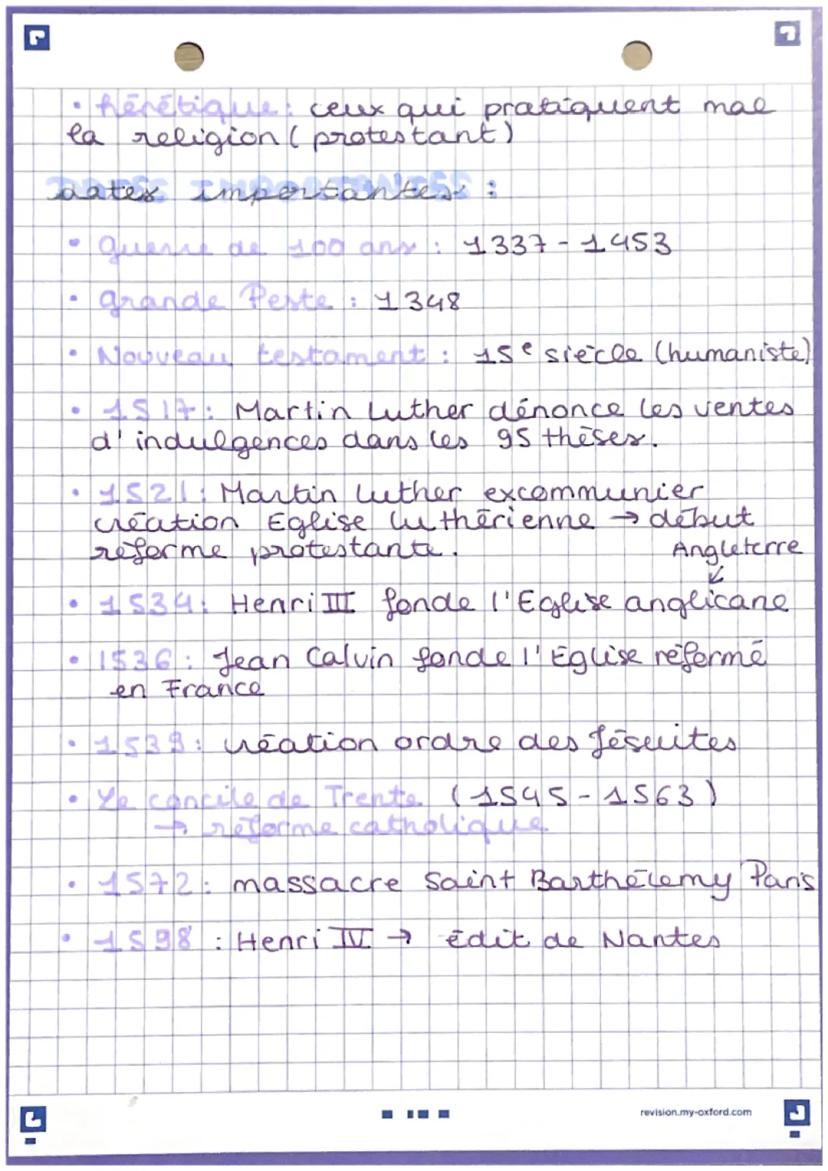 • hérétique : ceux qui pratiquent mal
la religion ( protestant )
dates importantes :
• Guerre de 100 ans : 1337 - 1453
• grande Peste : 1348
• Nouveau testament : 15e siècle (humaniste)
• 1517 : Martin Luther dénonce les ventes
d'indulgences dans les 95 thèses.
• 1521 : Martin Luther excommunier
création Eglise luthérienne → début
réforme protestante.
Angleterre
• 1534 : Henri III fonde l'Eglise anglicane
• 1536 : Jean Calvin fonde l'Eglise réformé
en France
• 1539 : création ordre des Jésuites
• Le concile de Trente (1545 - 1563)
→ réforme catholique
• 1572 : massacre Saint Barthélemy Paris
• 1598 : Henri IV → édit de Nantes
revision.my-oxford.com